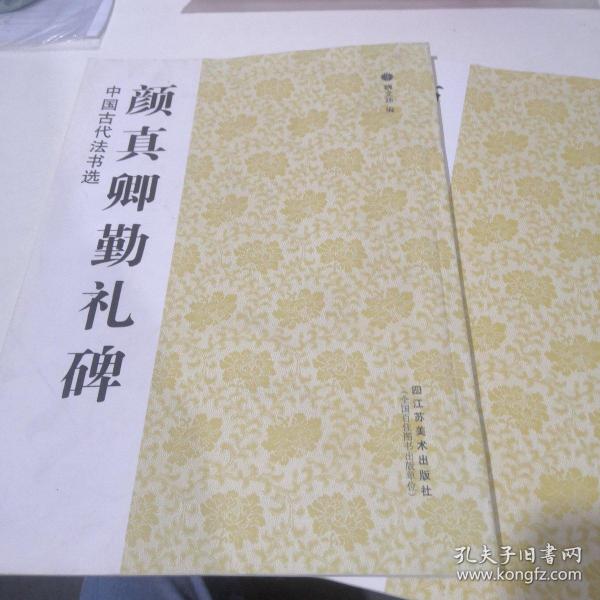 颜真卿勤礼碑
中国古代法书选
魏文源 编
江苏美术出版社
(全国百佳图书出版单位)
孔夫子旧书网
www.kongfz.com